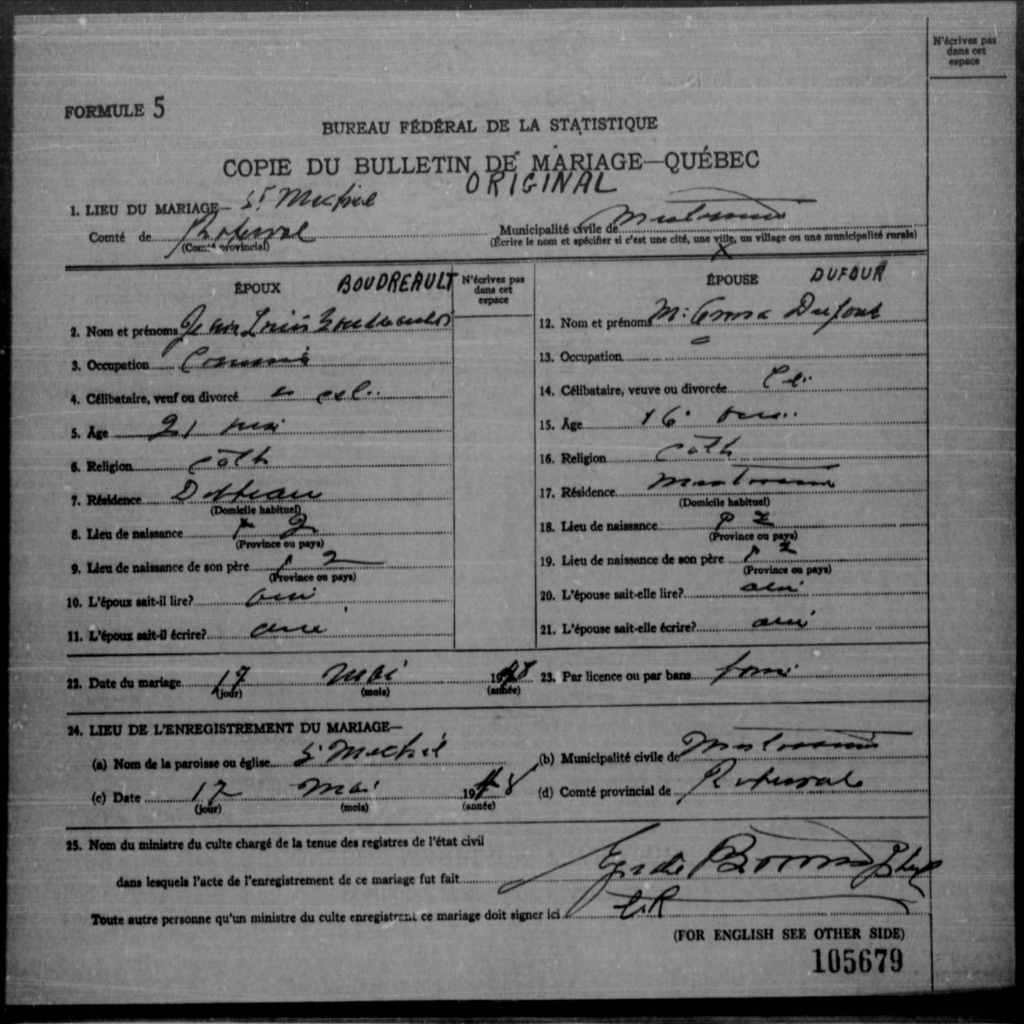 N'écrives pas
dans cet
espace
FORMULE 5
BUREAU FÉDÉRAL DE LA STATISTIQUE
COPIE DU BULLETIN DE MARIAGE—QUÉBEC
ORIGINAL
1. LIEU DU MARIAGE— St Michel
Comté de Roberval Municipalité civile de Mistassini
(Comté provincial) (Écrire le nom et spécifier si c'est une cité, une ville, un village ou une municipalité rurale)
X
ÉPOUX BOUDREAULT
N'écrives pas
dans cet
espace
2. Nom et prénoms Jean Louis Boudreault
3. Occupation
4. Célibataire, veuf ou divorcé cel.
5. Âge 21
6. Religion cath
7. Résidence Dolbeau
(Domicile habituel)
8. Lieu de naissance P Q
(Province ou pays)
9. Lieu de naissance de son père P Q
(Province ou pays)
10. L'époux sait-il lire? oui
11. L'époux sait-il écrire? oui
ÉPOUSE DUFOUR
12. Nom et prénoms M. Dufour
13. Occupation
14. Célibataire, veuve ou divorcée Cel.
15. Âge 16
16. Religion cath
17. Résidence Mistassini
(Domicile habituel)
18. Lieu de naissance P Q
(Province ou pays)
19. Lieu de naissance de son père P Q
(Province ou pays)
20. L'épouse sait-elle lire? oui
21. L'épouse sait-elle écrire? oui
22. Date du mariage 17 mai 1948 23. Par licence ou par bans
(jour) (mois) (année)
24. LIEU DE L'ENREGISTREMENT DU MARIAGE—
(a) Nom de la paroisse ou église St Michel (b) Municipalité civile de Mistassini
(c) Date 17 mai 1948 (d) Comté provincial de Roberval
(jour) (mois) (année)
25. Nom du ministre du culte chargé de la tenue des registres de l'état civil
dans lesquels l'acte de l'enregistrement de ce mariage fut fait
Toute autre personne qu'un ministre du culte enregistrant ce mariage doit signer ici
(FOR ENGLISH SEE OTHER SIDE)
105679